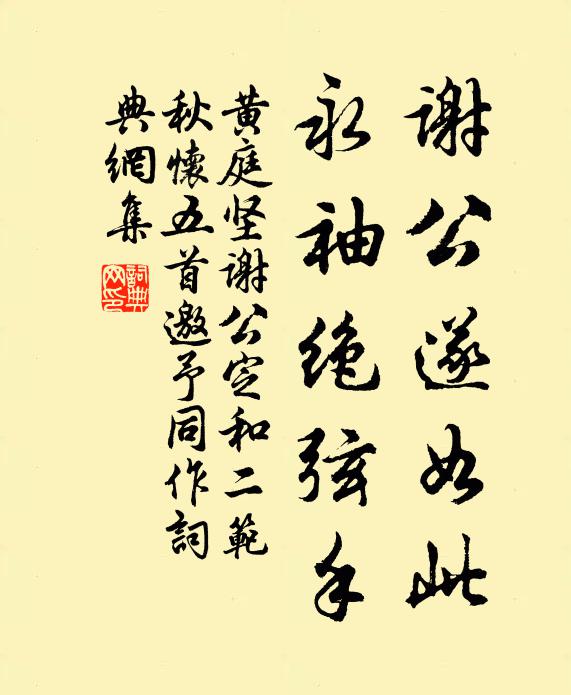 谢公遂如此
永袖绝弦手
黄庭坚谢公定和二範
秋懷五首邀予同作詞
典網集
詞典網印